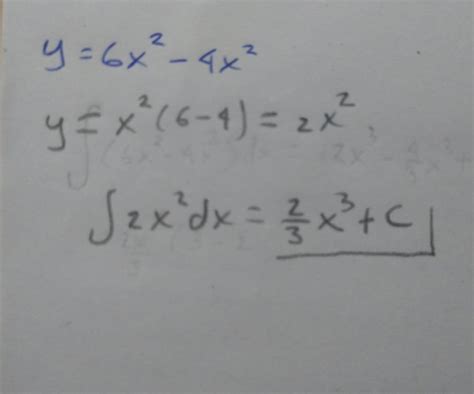 y = 6x² - 4x²
y = x²(6-4) = 2x²
∫2x²dx = 2/3 x³ + C